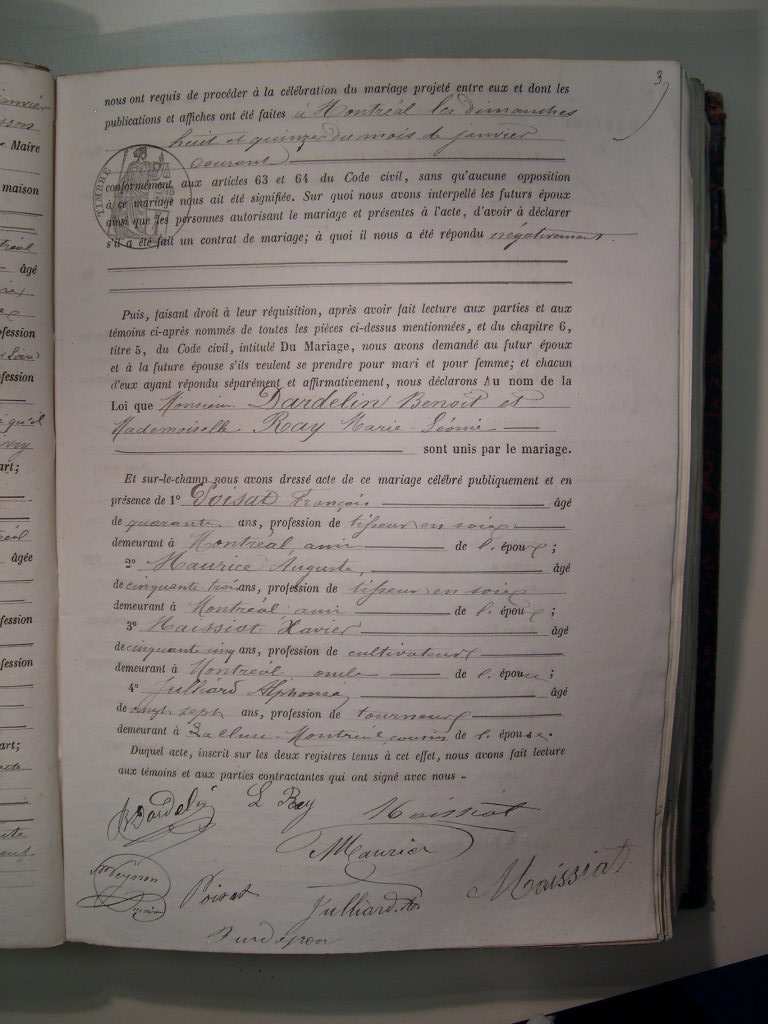 3
nous ont requis de procéder à la célébration du mariage projeté entre eux et dont les
publications et affiches ont été faites à Montréal les dimanches
huit et quinze du mois de janvier
courant
TIMBRE
conformément aux articles 63 et 64 du Code civil, sans qu'aucune opposition
à ce mariage nous ait été signifiée. Sur quoi nous avons interpellé les futurs époux
ainsi que les personnes autorisant le mariage et présentes à l'acte, d'avoir à déclarer
s'il a été fait un contrat de mariage; à quoi il nous a été répondu négativement.
Puis, faisant droit à leur réquisition, après avoir fait lecture aux parties et aux
témoins ci-après nommés de toutes les pièces ci-dessus mentionnées, et du chapitre 6,
titre 5, du Code civil, intitulé Du Mariage, nous avons demandé au futur époux
et à la future épouse s'ils veulent se prendre pour mari et pour femme; et chacun
d'eux ayant répondu séparément et affirmativement, nous déclarons Au nom de la
Loi que Monsieur Dardelin Benoît et
Mademoiselle Ray Marie-Léonie
sont unis par le mariage.
Et sur-le-champ nous avons dressé acte de ce mariage célébré publiquement et en
présence de 1° Poisat François âgé
de quarante ans, profession de tisseur en soie
demeurant à Montréal, ami de l'époux;
2° Maurice Auguste, âgé
de cinquante trois ans, profession de tisseur en soie
demeurant à Montréal ami de l'époux;
3° Maissiat Xavier âgé
de cinquante cinq ans, profession de cultivateur
demeurant à Montréal oncle de l'épouse;
4° Julliard Alphonse, âgé
de vingt sept ans, profession de tourneur
demeurant à Montréal cousin de l'épouse.
Duquel acte, inscrit sur les deux registres tenus à cet effet, nous avons fait lecture
aux témoins et aux parties contractantes qui ont signé avec nous -
B Dardelin L Rey Maissiat
Maurice
Poisat Julliard Maissiat